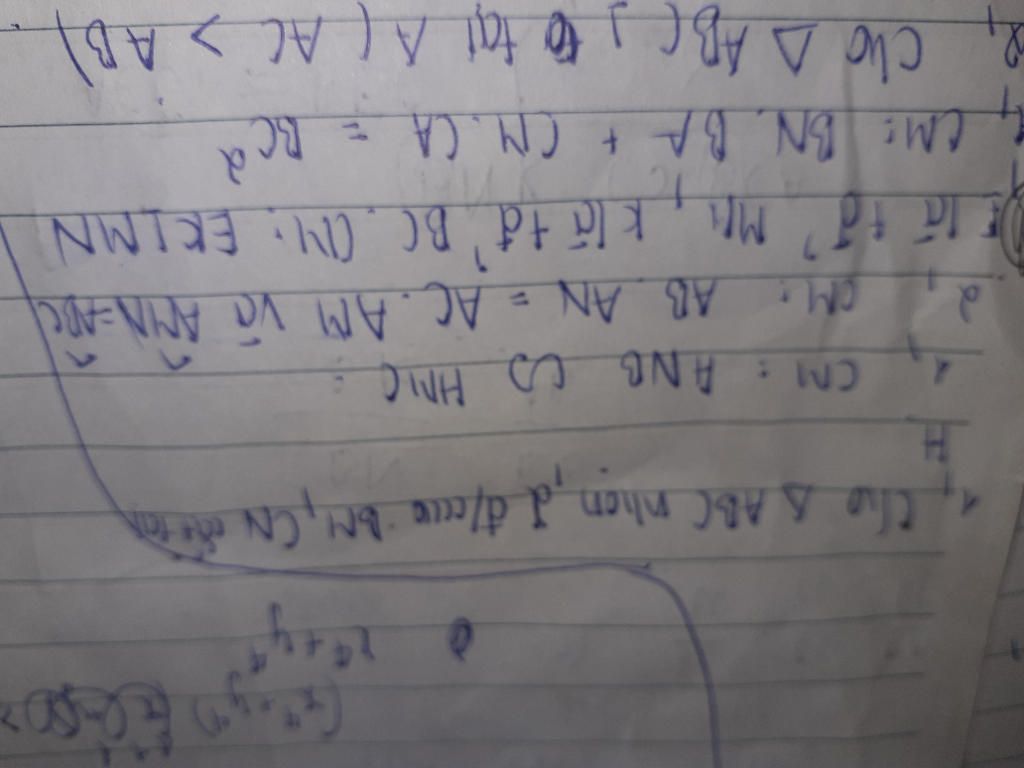 (x⁴+y⁴)
x⁴ + y⁴
1, Cho Δ ABC nhọn, 2 đ/cao BM, CN cắt tại
H
1, CM: HNB ∽ HMC
2, CM: AB.AN = AC.AM và AMN̂=ABĈ
E là tđ' MN, K là tđ' BC. CM: EK⊥MN
CM: BN.BA + CM.CA = BC²
2, Cho Δ ABC ⊥ tại A (AC > AB)